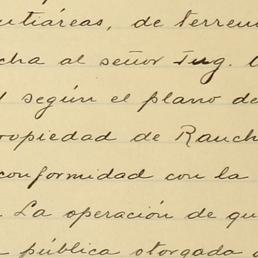 utiáreas, de terren
cha al señor Ing.
según el plano de
ropiedad de Ranch
conformidad con la
La operación de qu
pública otorgada